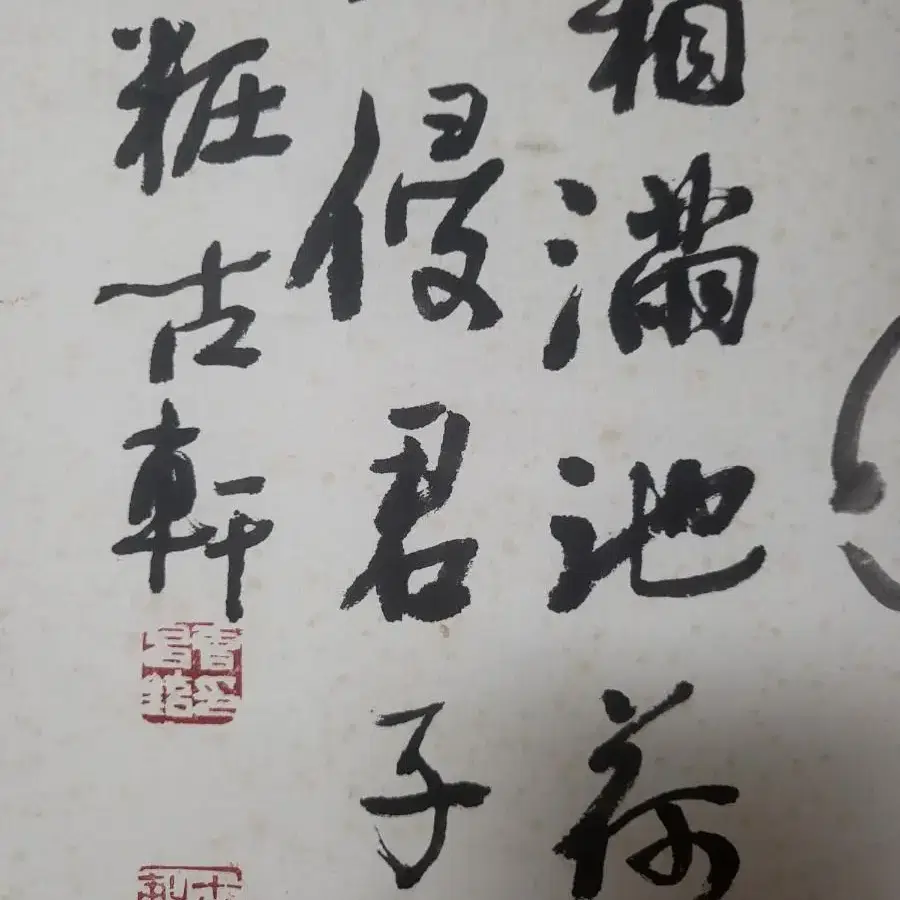 相滿池荷
侵君子
粧古軒